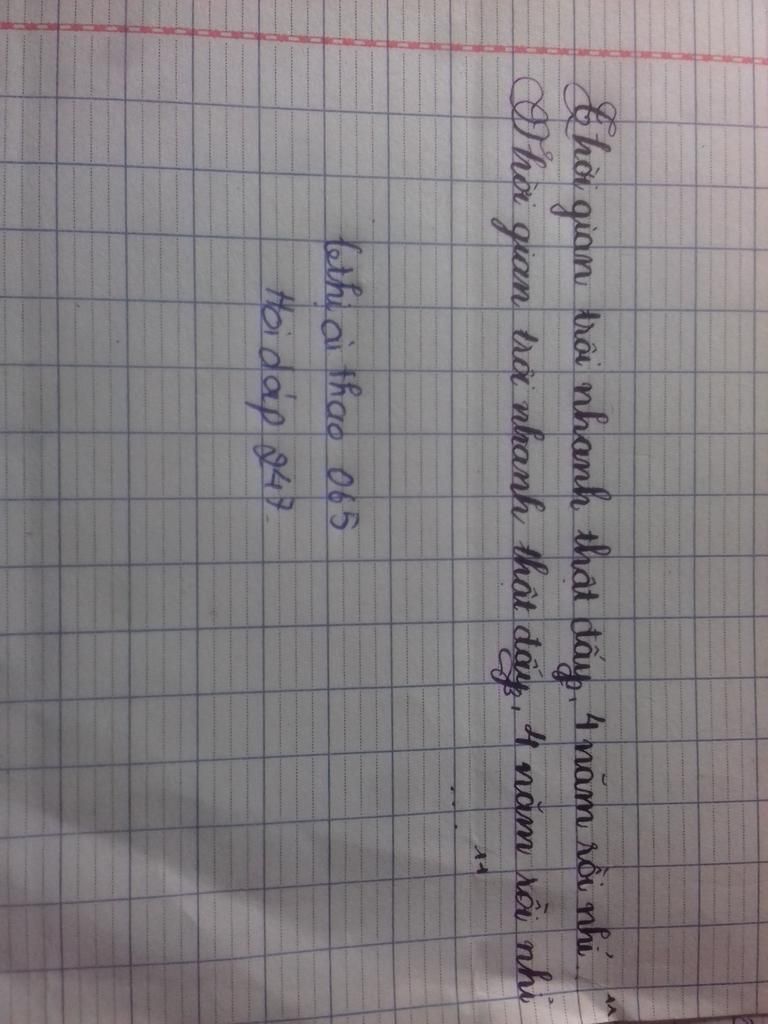 Thời gian trôi nhanh thật đấy, 4 năm rồi nhỉ... "
Thời gian trôi nhanh thật đấy, 4 năm rồi nhỉ
... "
lethị ái thao 065
Hỏi đáp 247